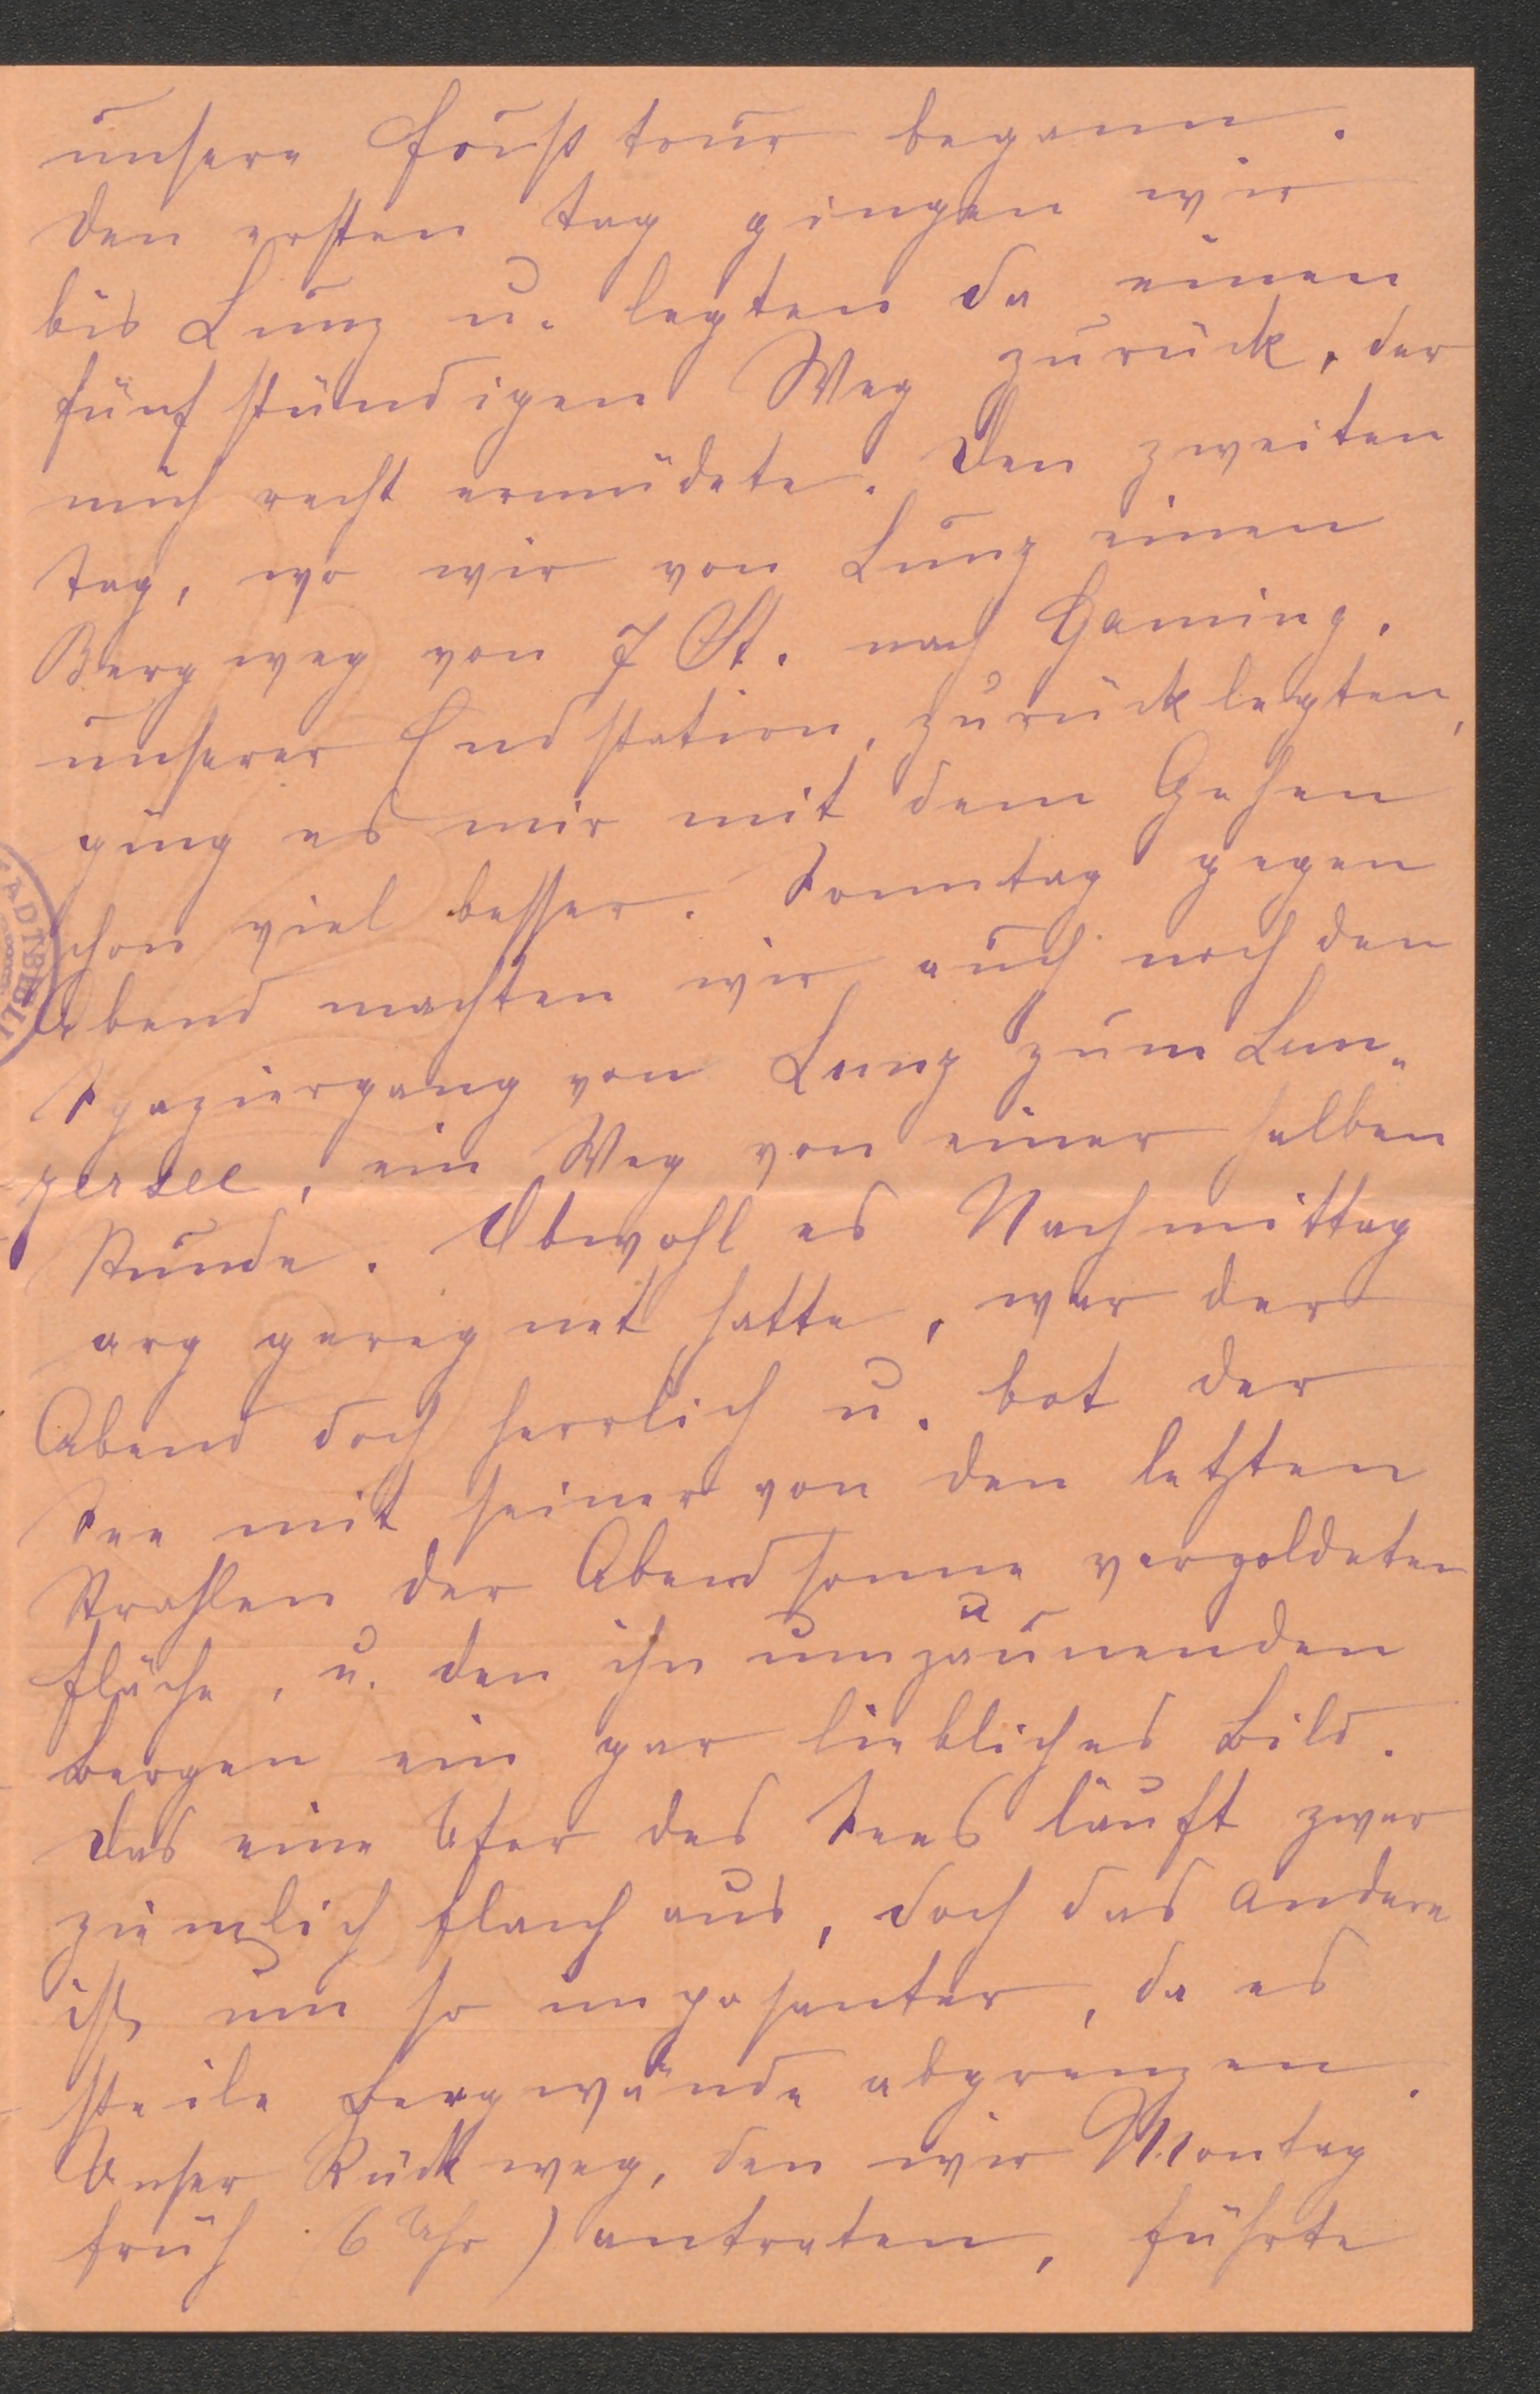 unsere Fußtour begann.
Den ersten Tag gingen wir
bis Lunz u. legten da einen
fünfstündigen Weg zurück, der
mich recht ermüdete. Den zweiten
Tag, wo wir von Lunz einen
Bergweg von 7 St. nach Gaming,
unserer Endstation, zurücklegten,
ging es mir mit dem Gehen
schon viel besser. Sonntag gegen
Abend machten wir auch noch den
Spaziergang von Lunz zum Lun-
zersee, ein Weg von einer halben
Stunde. Obwohl es Nachmittag
arg geregnet hatte, war der
Abend doch herrlich u. bot der
See mit seiner von den letzten
Strahlen der Abendsonne vergoldeten
Fläche, u. den ihn umzäunenden
Bergen ein gar liebliches Bild.
Das eine Ufer des Sees läuft zwar
ziemlich flach aus, doch das andere
ist um so imposanter, da es
steile Bergwände abgrenzen.
Unser Rückweg, den wir Montag
früh 6 Uhr) antraten, führte